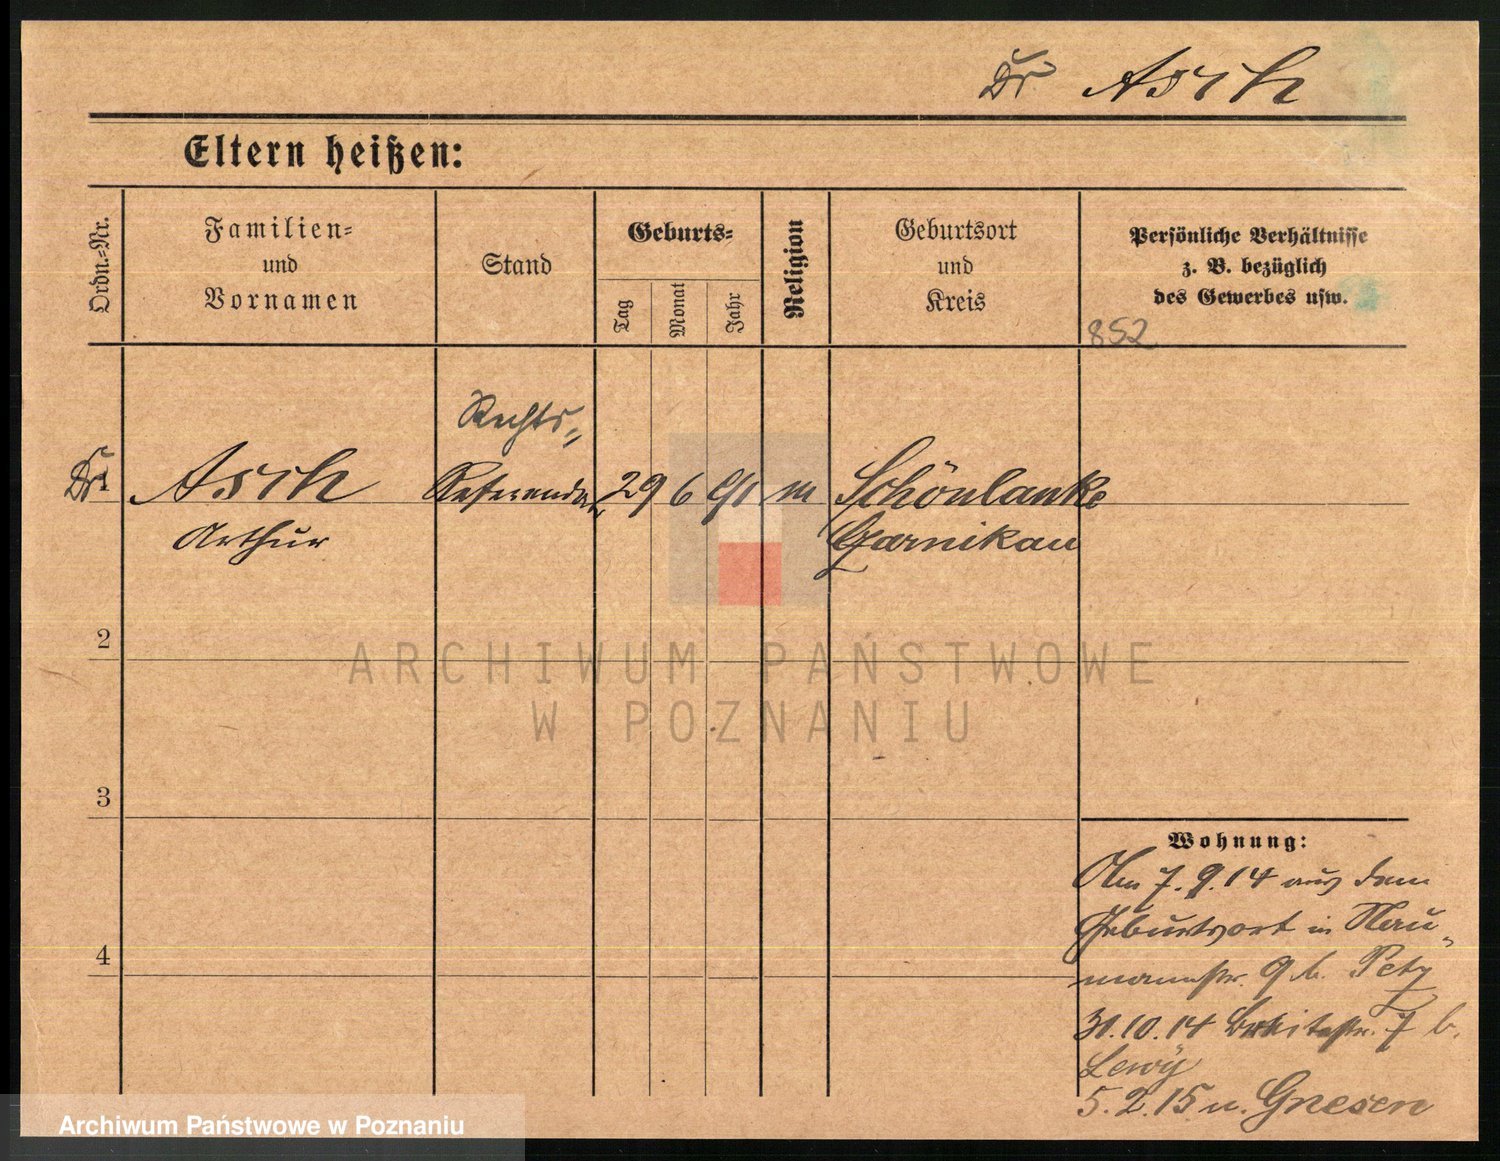 Dr Asch
Eltern heißen:
Ordn.-Nr.
Familien-
und
Vornamen
Stand
Geburts-
Tag
Monat
Jahr
Religion
Geburtsort
und
Kreis
Persönliche Verhältnisse
z. B. bezüglich
des Gewerbes usw.
852
Rechts-
Dr. 1 Asch Referendar 29 6 91 m Schönlanke
Arthur Czarnikau
2
3
4
ARCHIWUM PAŃSTWOWE
W POZNANIU
Wohnung:
Am 7.9.14 aus dem
Geburtsort in Nau-
mannstr. 9 b. Petz
31.10.14 Breitestr. 7 b.
Lewy
5.2.15 n. Gnesen
Archiwum Państwowe w Poznaniu